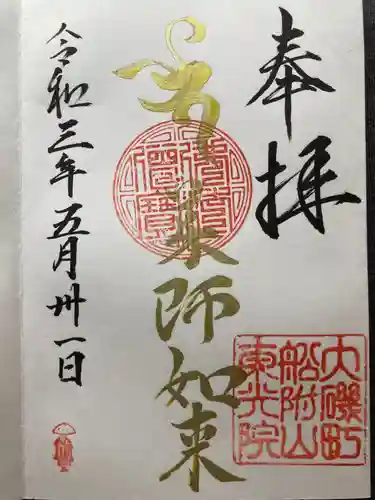 奉拝
薬師如来
令和三年五月卅一日
大磯町
船附山
東光院
佛法僧寳